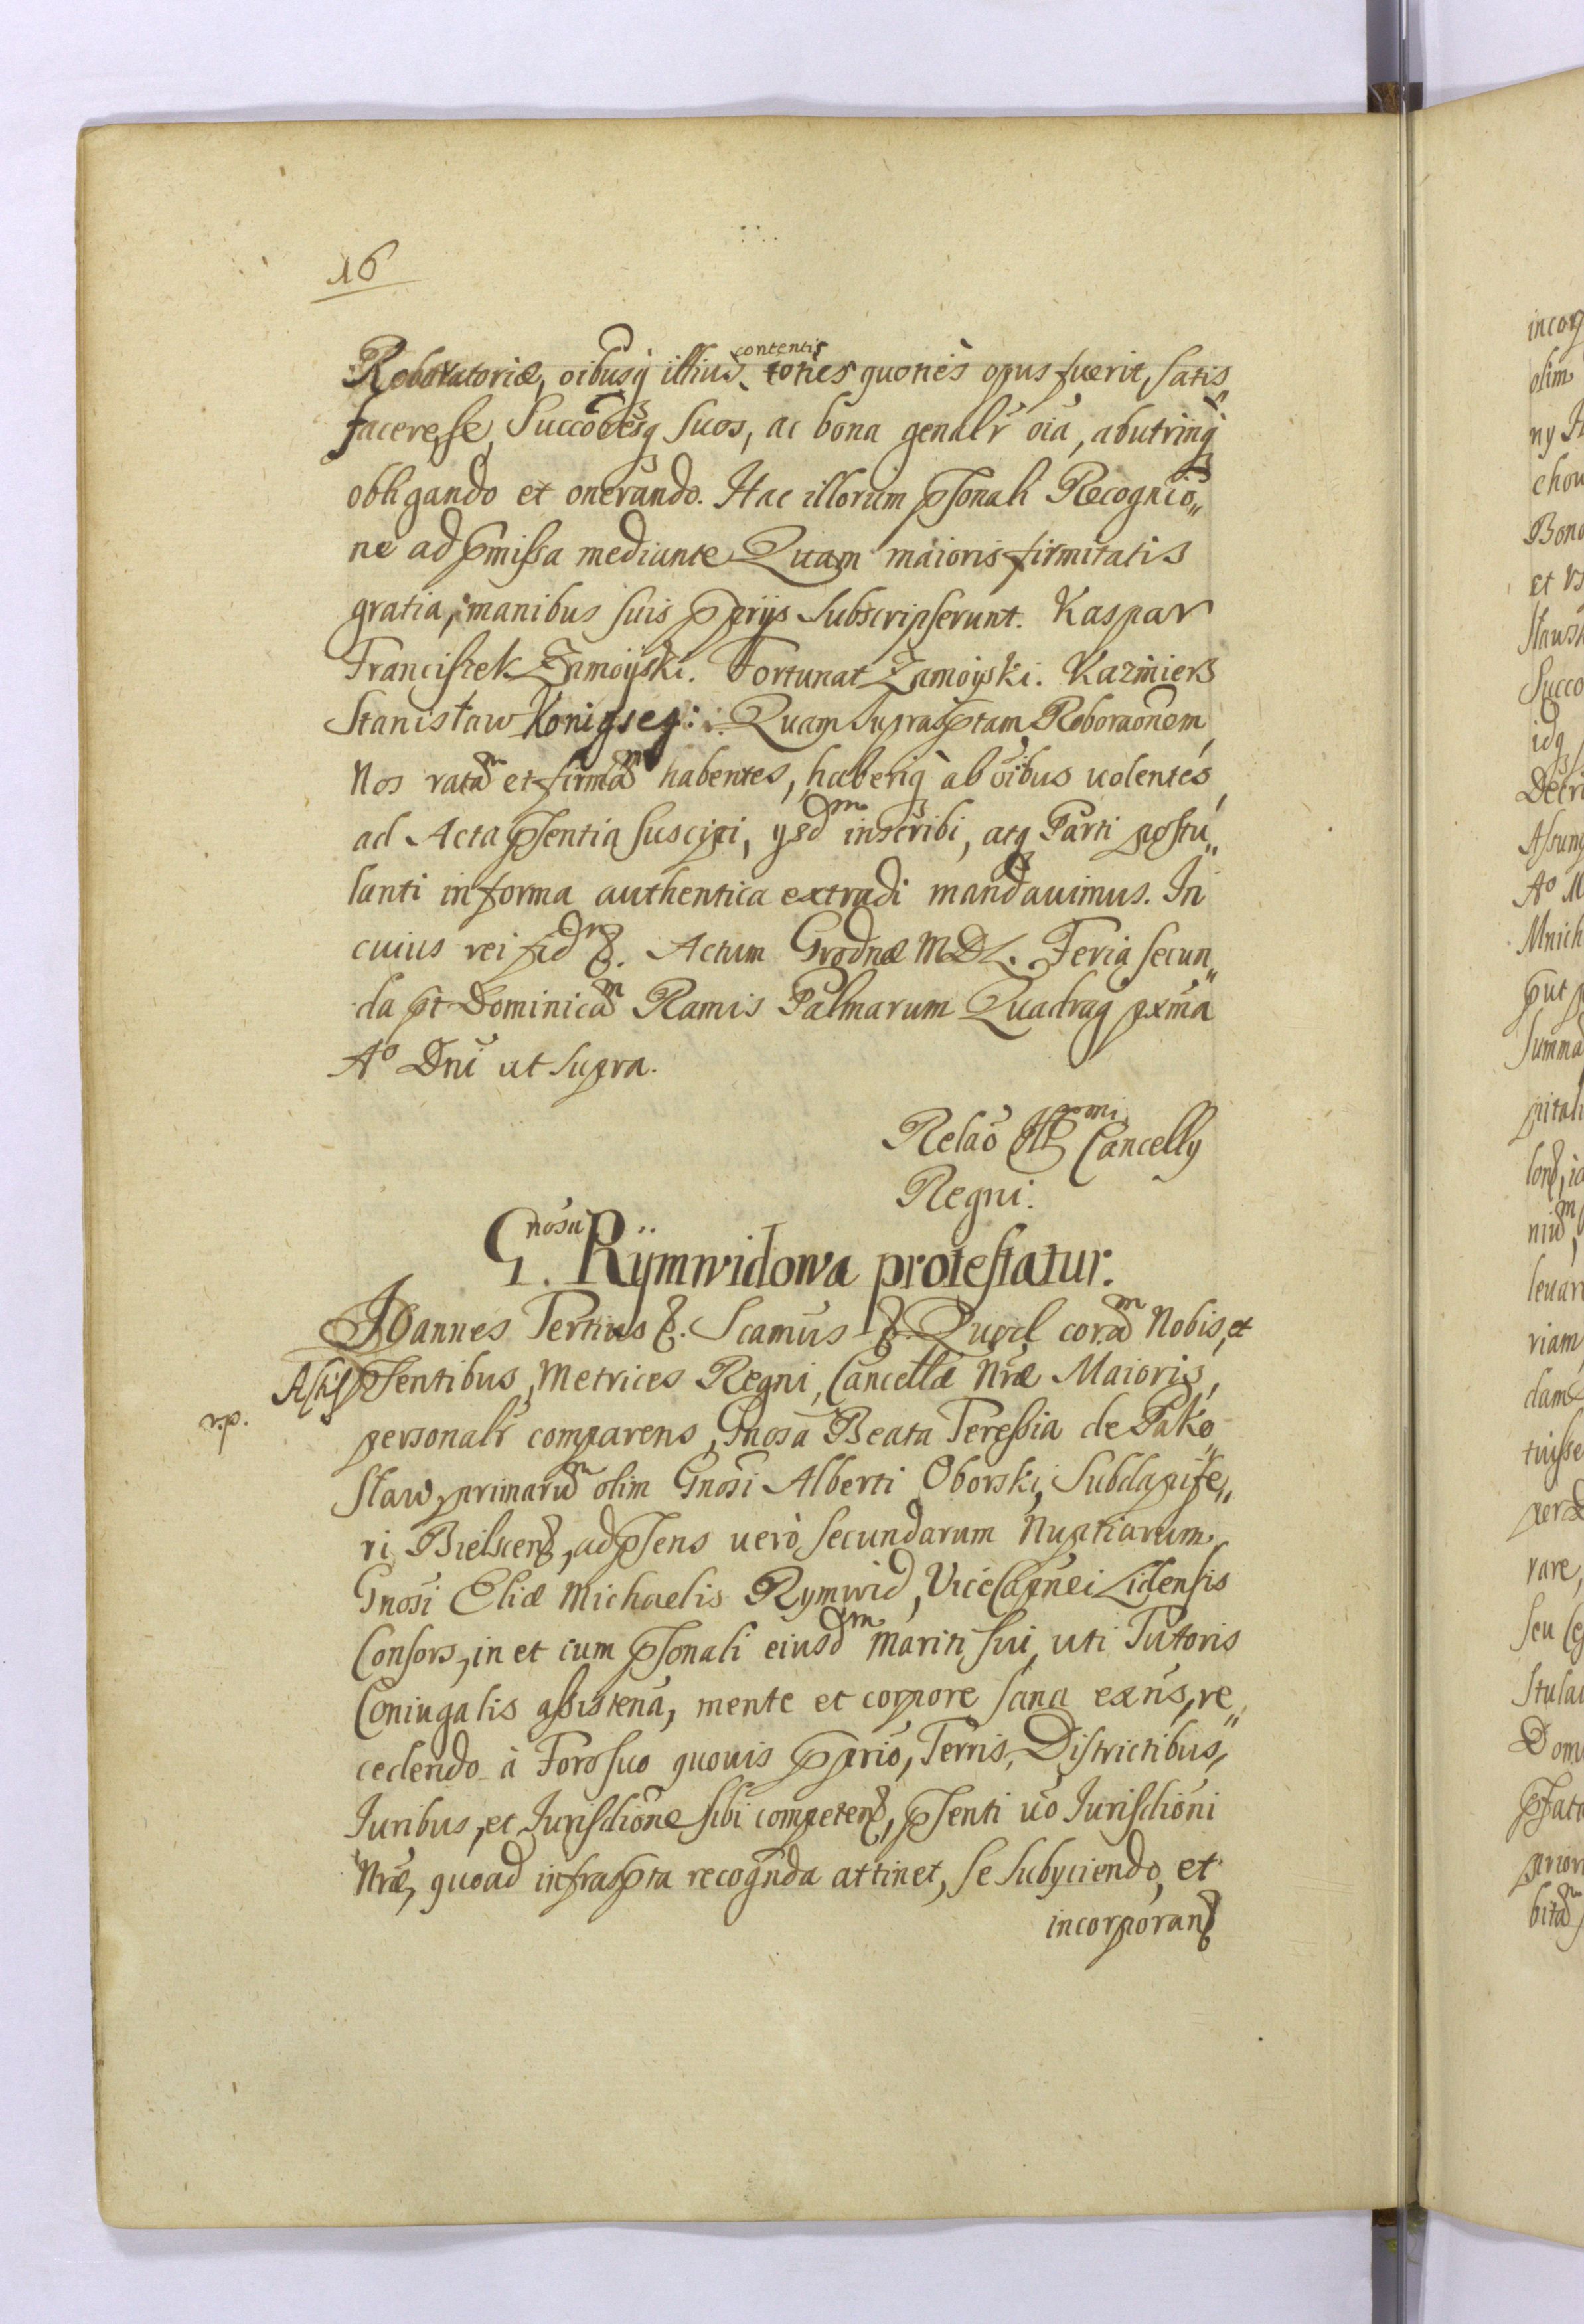 16
Roboratoriæ, oibusq illius contentis toties quoties opus fuerit, satis
facere, se, Succōresq suos, ac bona genalr̄ oīa, ab utrinq
obligando et onerando. Hac illorum psonali Recognitio„
ne ad pmissa mediante Quam maioris firmitatis
gratia, manibus suis pprijs subscripserunt. Kaspar
Franciszek Zamoÿski. Fortunat Zamoÿski. Kazimierz
Stanisław Konigseg: Quam suprasptam Roboraōnem
Nos ratam et firmam habentes, haberiq ab oibus uolentes,
ad Acta psentia suscipi, ysdm inscribi, atq Parti postu„
lanti in forma authentica extradi mandauimus. In
cuius rei fidm &. Actum Grodnæ MDL. Feria secun„
da pt Dominicam Ramis Palmarum Quadrag pxma
Ao Dni ut supra.
Relaō Illmi Cancelly
Regni.
Gnosa Rÿmwidowa protestatur.
Joannes Tertius &. Scamus &. Quod coram Nobis, et
Actis psentibus, Metrices Regni, Cancellæ Nræ Maioris,
rsp.
personalr̄ comparens, Gnosa Beata Teressia de Pako„
sław, primarum olim Gnosi Alberti Oborski, Subdapife„
ri Bielscen, ad psens uerò secundarum Nuptiarum,
Gnosi Eliæ Michaelis Rymwid, ViceCapnei Lidensis
Consors, in et cum psonali eiusdm Mariti sui, uti Tutoris
Coniugalis assistena, mente et corpore sana exns, re„
cedendo à Foro suo quouis pprio, Terris, Districtibus,
Juribus, et Jurisdione sibi competen, psenti uō Jurisdioni
Nræ, quoad infraspta recognda attinet, se subyciendo, et
incorporan